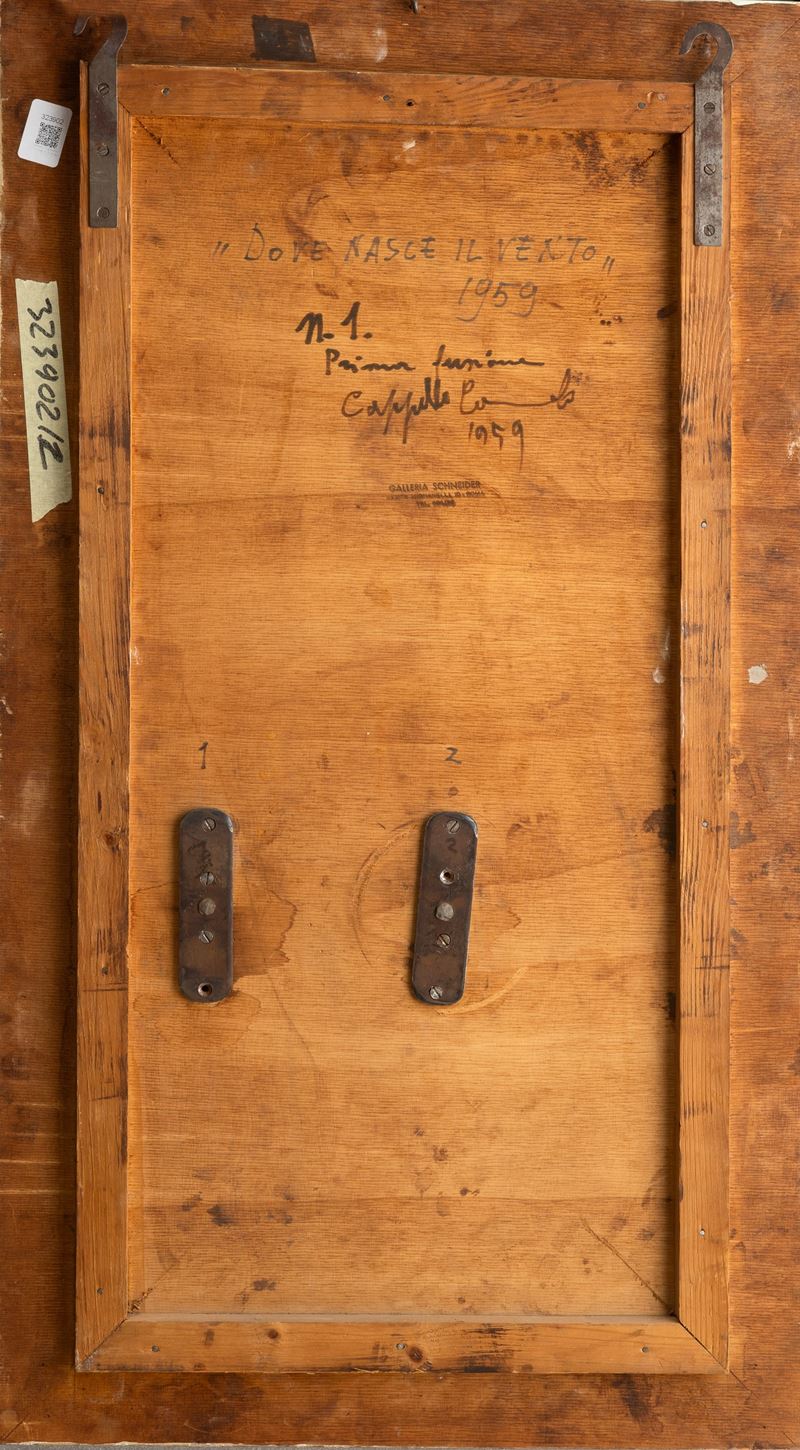 323902
„ DOVE NASCE IL VENTO „
1959
N. 1.
Prima fusione
Cappello Carmelo
1959
323902/2
GALLERIA SCHNEIDER
ROMA
TEL.
1
2
2